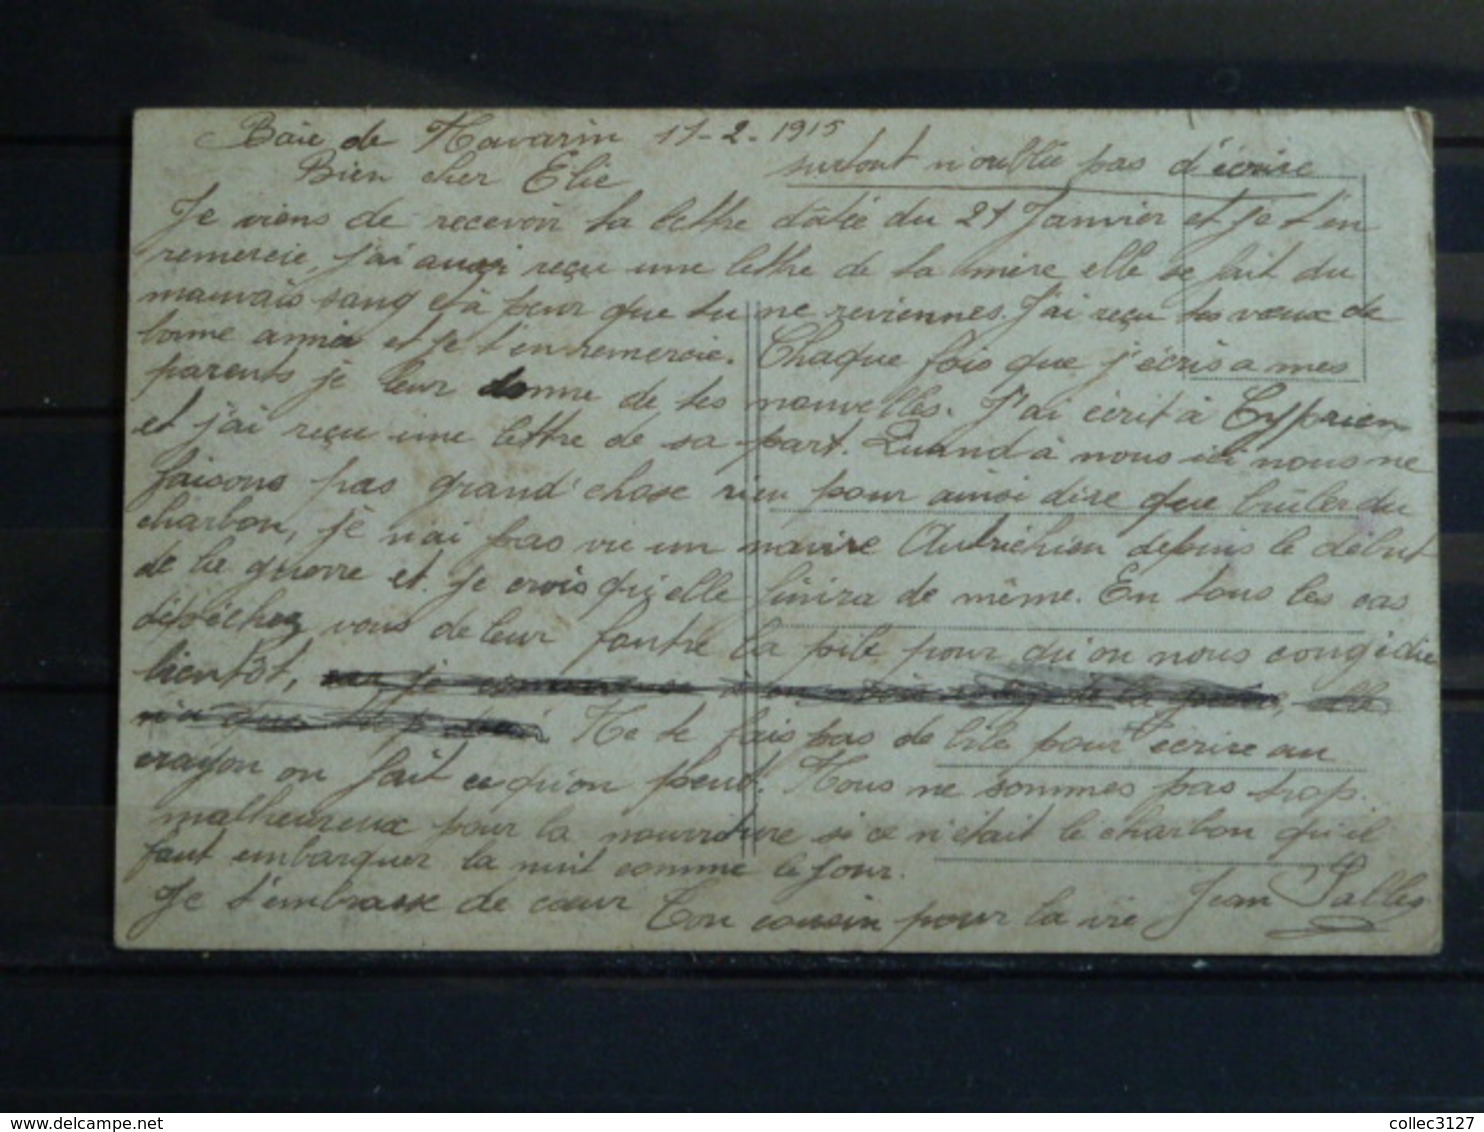 Baie de Navarin 11-2-1915
surtout n'oublie pas d'écrire
Bien cher Elie
Je viens de recevoir ta lettre datée du 21 Janvier et je t'en
remercie, j'ai aussi reçu une lettre de ta mère elle se fait du
mauvais sang et à peur que tu ne reviennes. J'ai reçu tes vœux de
bonne année et je t'en remercie. Chaque fois que j'écris a mes
parents je leur donne de tes nouvelles. J'ai écrit à Cyprien
et j'ai reçu une lettre de sa part. Quand à nous ici nous ne
faisons pas grand'chose rien pour ainsi dire que brûler du
charbon, je n'ai pas vu un navire Autrichien depuis le début
de la guerre et je crois qu'elle finira de même. En tous les cas
dépêchez vous de leur foutre la pile pour qu'on nous congédie
bientôt,
Ne te fais pas de bile pour écrire au
crayon on fait ce qu'on peut. Nous ne sommes pas trop
malheureux pour la nourriture si ce n'était le charbon qu'il
faut embarquer la nuit comme le jour.
Je t'embrasse de cœur Ton cousin pour la vie Jean Salles
collec3127